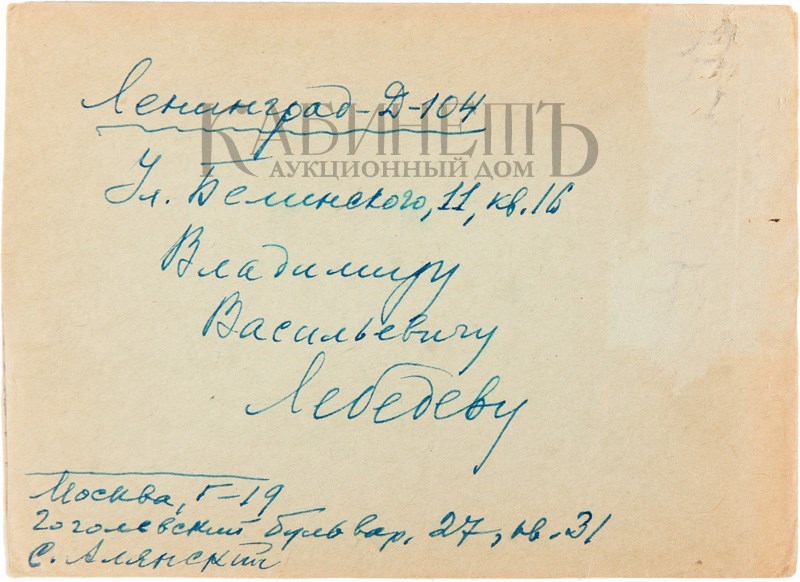 Ленинград-Д-104
КАБИНЕТЪ
АУКЦИОННЫЙ ДОМ
Ул. Белинского, 11, кв. 16
Владимиру
Васильевичу
Лебедеву
Москва, Г-19
Гоголевский бульвар, 27, кв. 31
С. Алянский